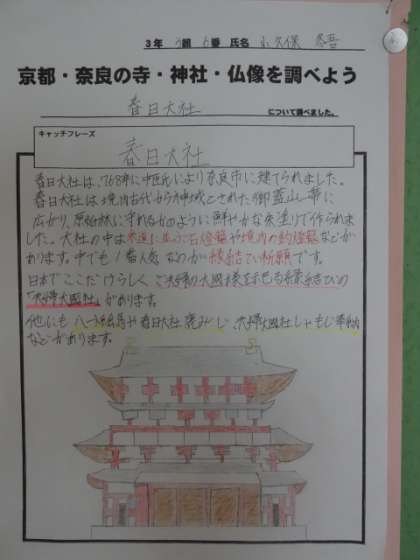 3年 組 番 氏名 久保
京都・奈良の寺・神社・仏像を調べよう
春日大社 について調べました。
キャッチフレーズ
春日大社
春日大社は、768年に中臣氏により奈良市に建てられました。
春日大社は境内古代から神域とされた御蓋山一帯に
広がり、原始林に守れるかのように鮮やかな朱塗りで作られま
した。大社の中は参道に並ぶ石燈籠や境内の釣燈籠などがあ
ります。中でも1番人気なのが縁結び祈願です。
日本でここだけらしく、ご夫婦の大國様を祀る縁結びの
「夫婦大國社」があります。
他にも 絵馬や春日大社 みくじ 夫婦大國社しゃもじ奉納
などがあります。